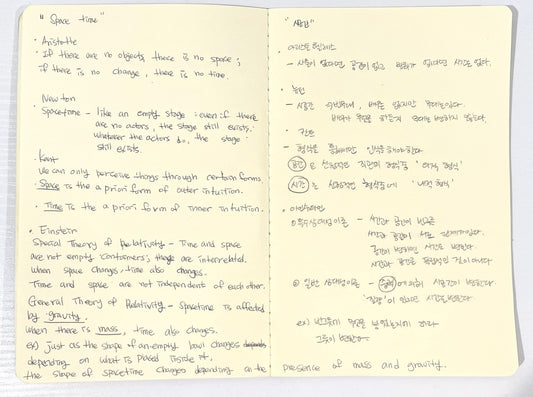 "Space time"
· Aristotle
· If there are no objects, there is no space;
if there is no change, there is no time.
Newton
Spacetime - like an empty stage: even if there
are no actors, the stage still exists.
whatever the actors do, the stage
still exists.
· Kant
we can only perceive things through certain forms.
· Space is the a priori form of outer intuition.
· Time is the a priori form of inner intuition.
· Einstein
Special Theory of Relativity - Time and space
are not empty containers; they are interrelated.
When space changes, time also changes.
Time and space are not independent of each other.
General Theory of Relativity - Spacetime is affected
by gravity.
When there is mass, time also changes.
ex) just as the shape of an empty bowl changes
depending on what is placed inside it,
the shape of spacetime changes depending on the
"시간"
· 아리스토텔레스
- 사물이 없다면 공간이 없고 변화가 없다면 시간도 없다.
· 뉴턴
- 시공간
· 칸트
- 형식을 통해서만 인식을 해야한다
공간 은 선험적인 직관의 '외적 형식'
시간 는 선험적인 '내적 형식'
· 아인슈타인
특수상대성이론 - 시간과 공간이
시간과 공간이 서로
공간이 변하면 시간도 변한다
시간과 공간은 독립적인 것이 아니다
② 일반 상대성이론 - 중력 에 의해 시공간이 변한다
'질량'이 있으면 시간도 변한다
ex) 빈그릇이 무엇을
그릇이
presence of mass and gravity.